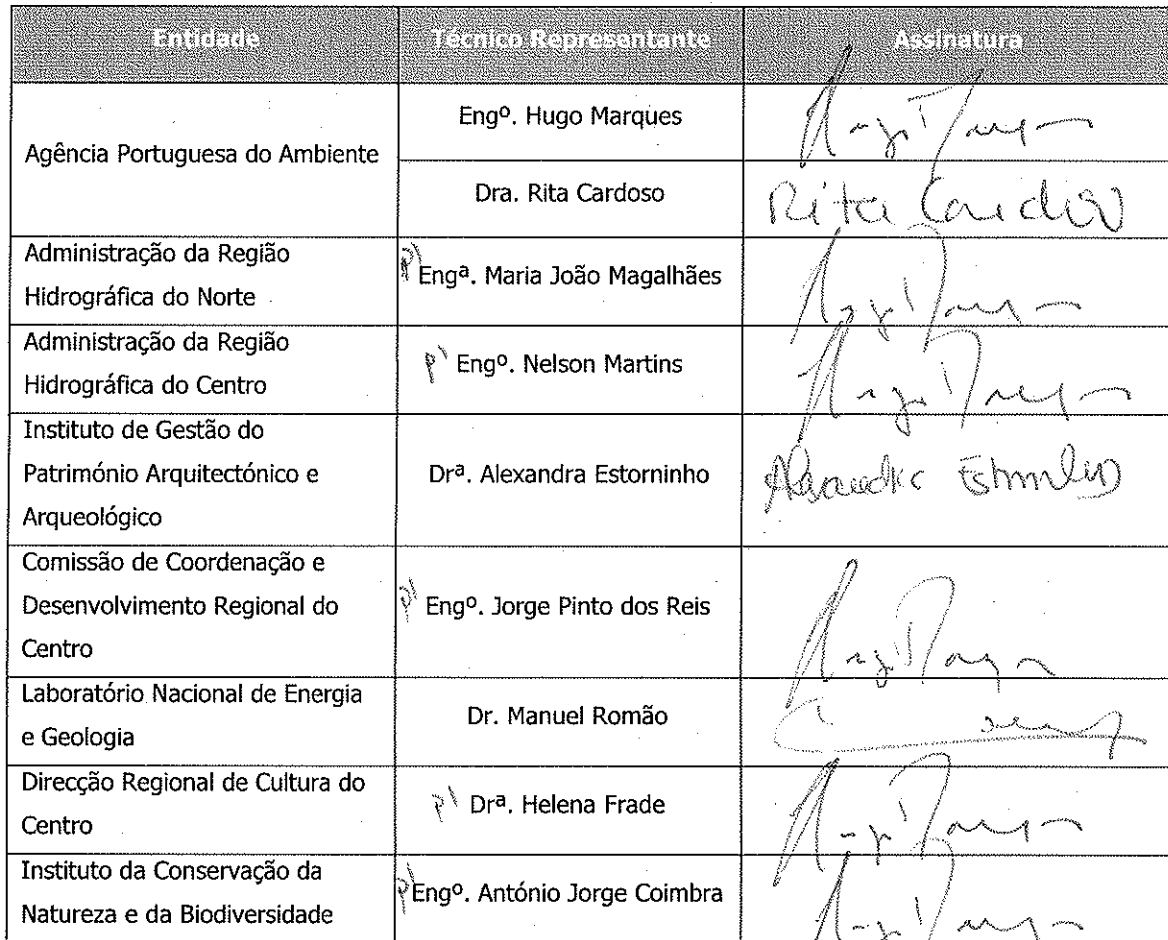 Entidade
Técnico Representante
Assinatura
Agência Portuguesa do Ambiente
Engº. Hugo Marques
Dra. Rita Cardoso
Rita Cardoso
Administração da Região
Hidrográfica do Norte
p' Engª. Maria João Magalhães
Administração da Região
Hidrográfica do Centro
p' Engº. Nelson Martins
Instituto de Gestão do
Património Arquitectónico e
Arqueológico
Drª. Alexandra Estorninho
Alexandra Estorninho
Comissão de Coordenação e
Desenvolvimento Regional do
Centro
p' Engº. Jorge Pinto dos Reis
Laboratório Nacional de Energia
e Geologia
Dr. Manuel Romão
Direcção Regional de Cultura do
Centro
p' Drª. Helena Frade
Instituto da Conservação da
Natureza e da Biodiversidade
p' Engº. António Jorge Coimbra